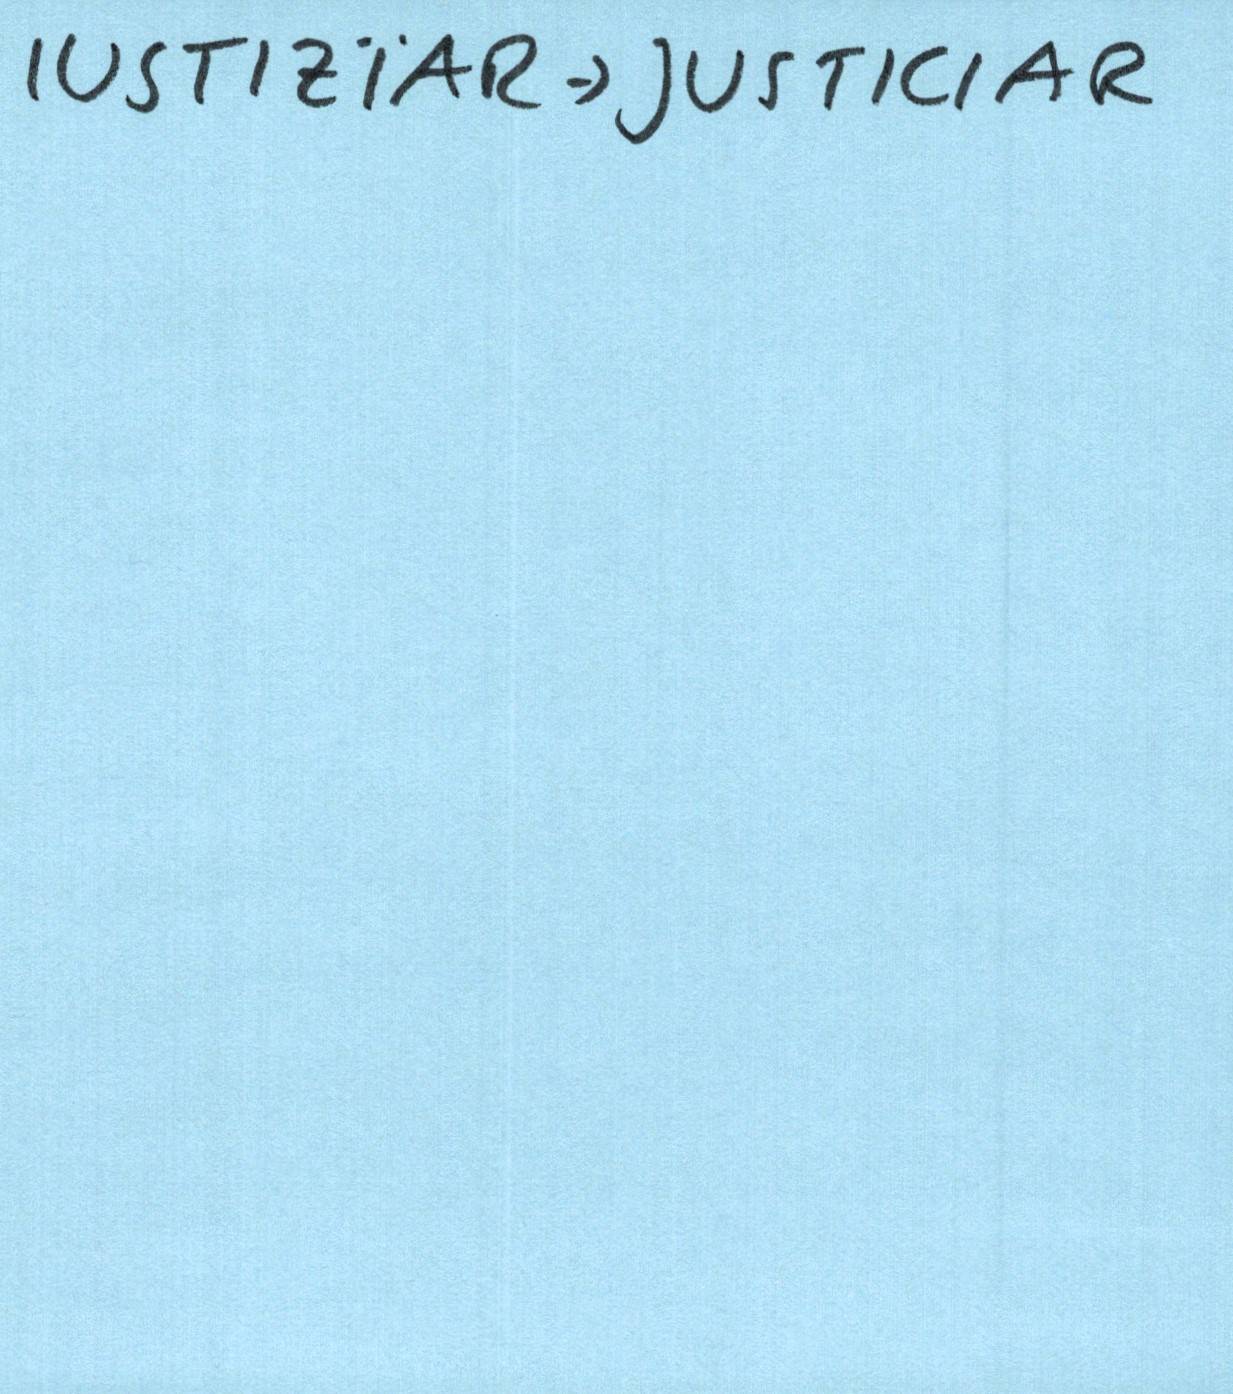 IUSTIZÏAR → JUSTICIAR